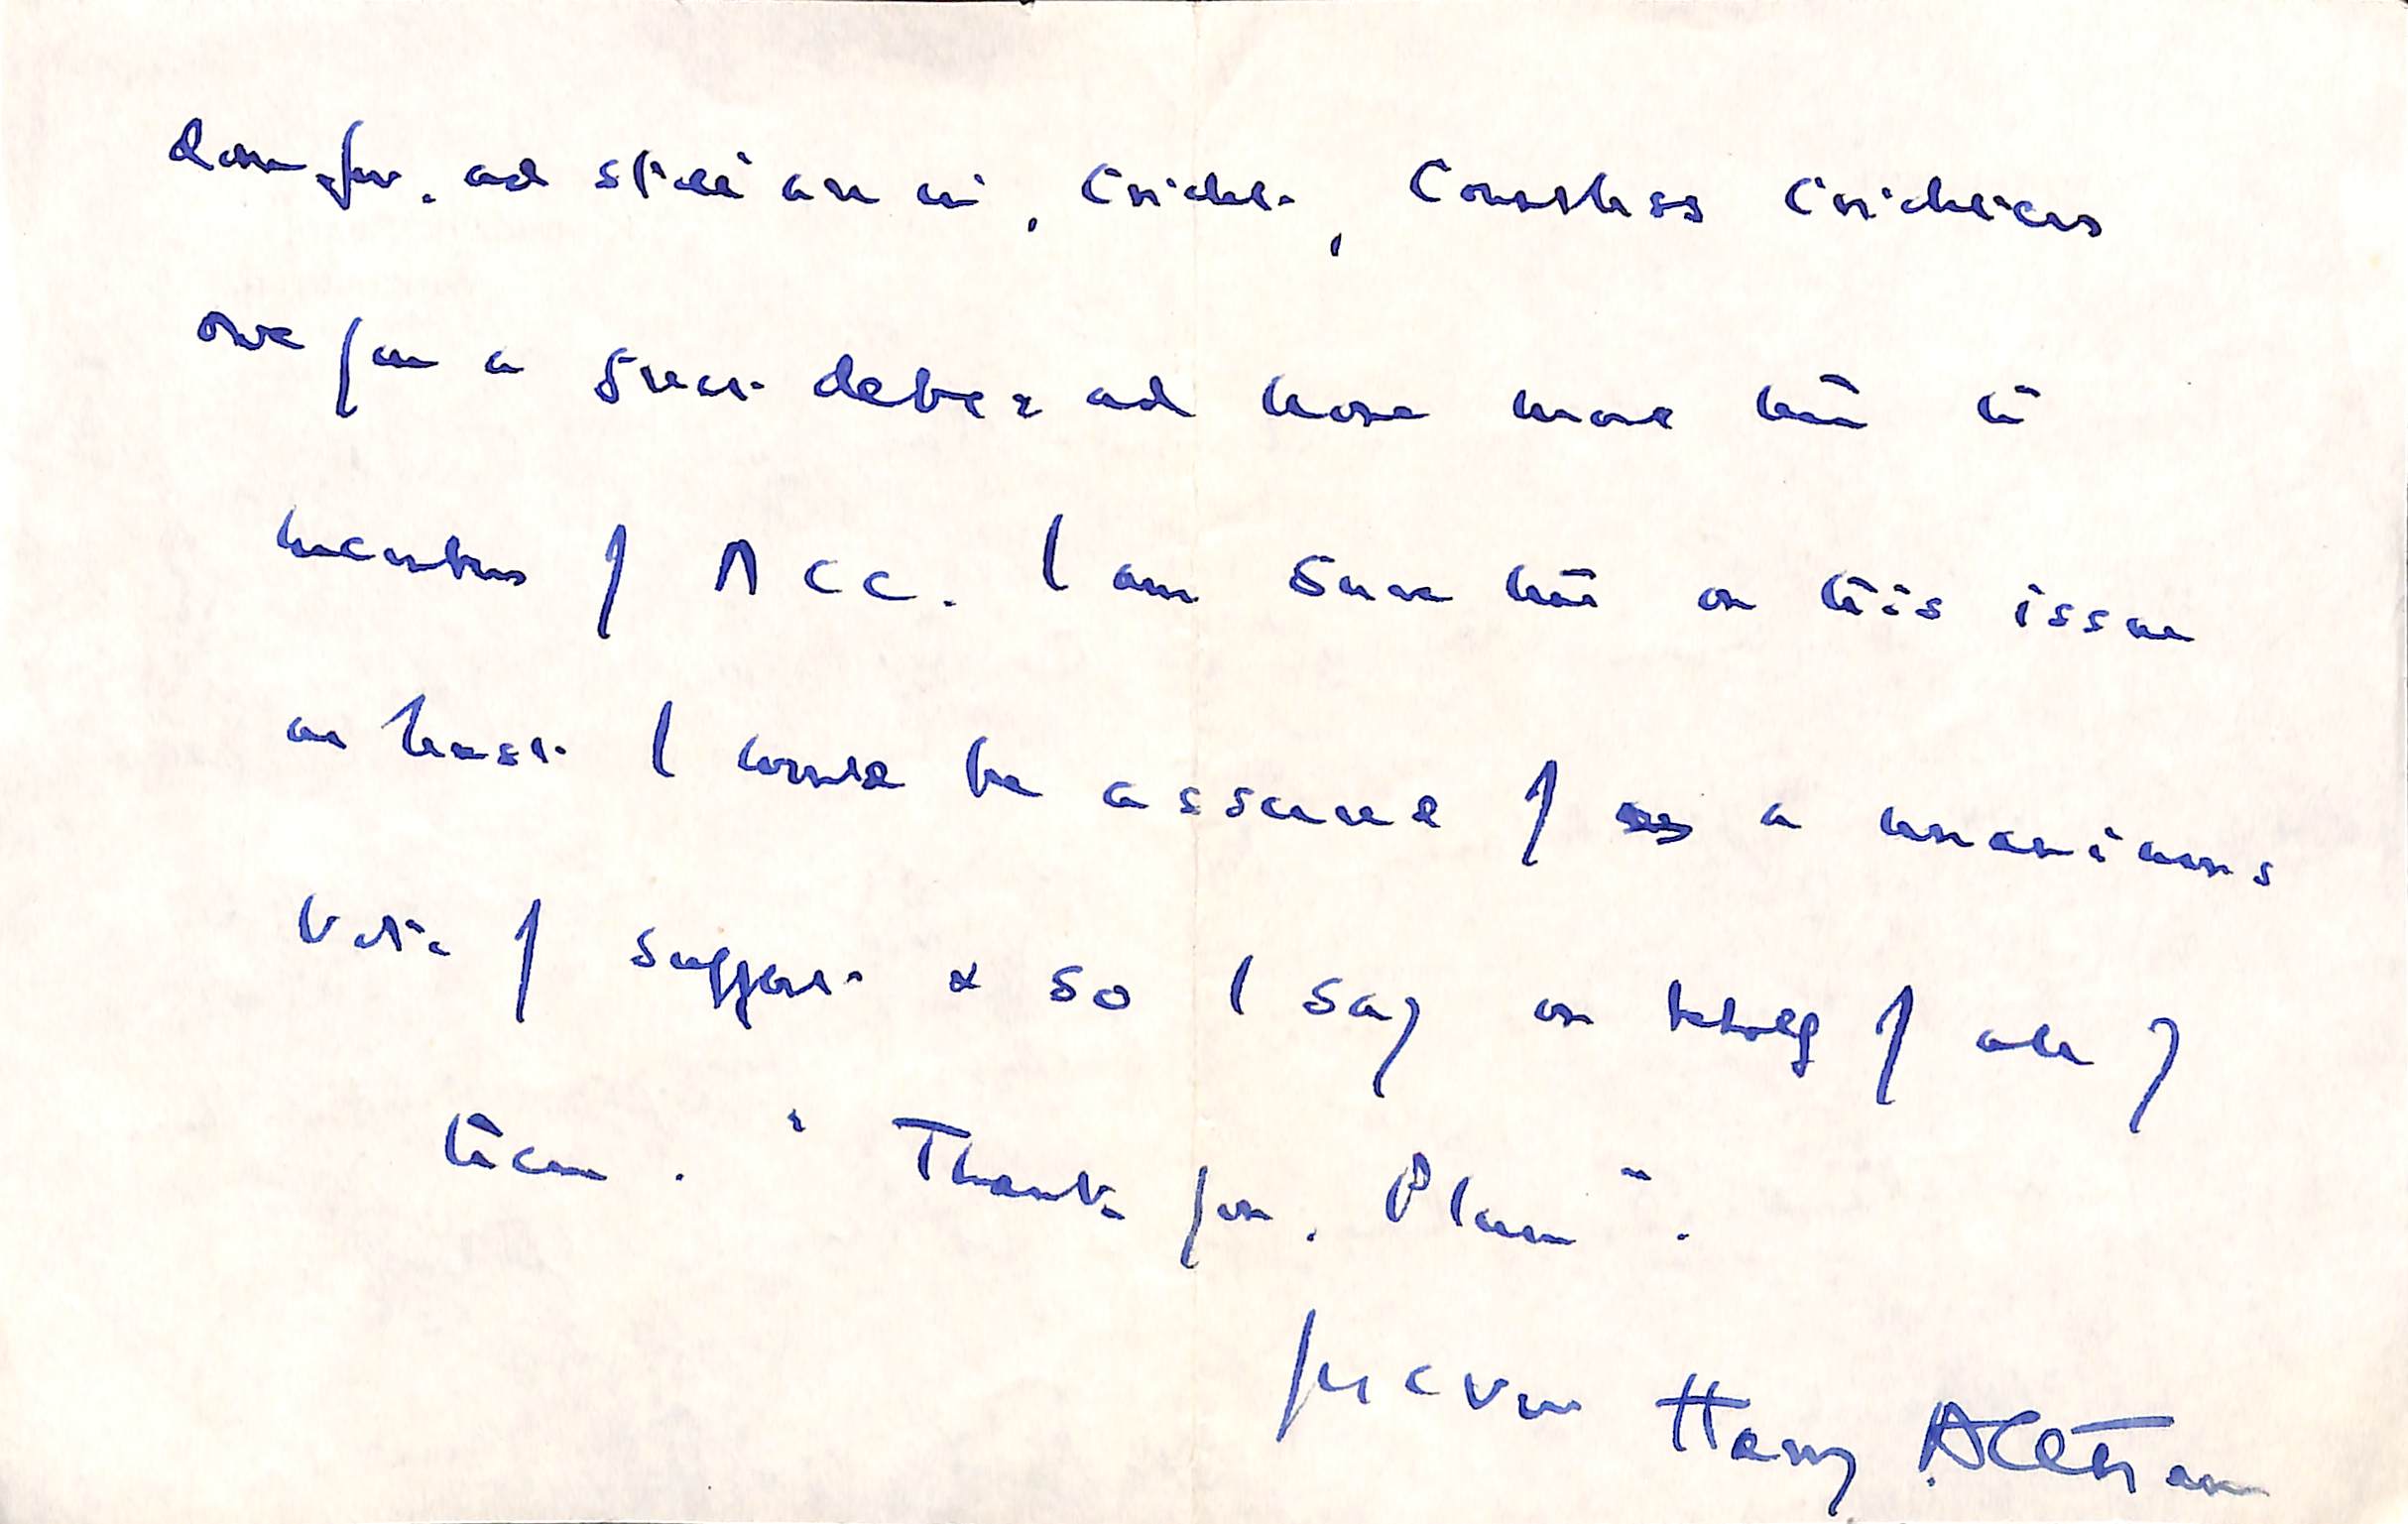 done for, and still are in, Cricket, Countless Cricketers
owe you a great debt & and none more than the
members of MCC. I am sure that on this issue
at least I would be assured of a unanimous
vote of support & so I say on behalf of all of
them. "Thank you, Plum".
yrs ever Harry Altham